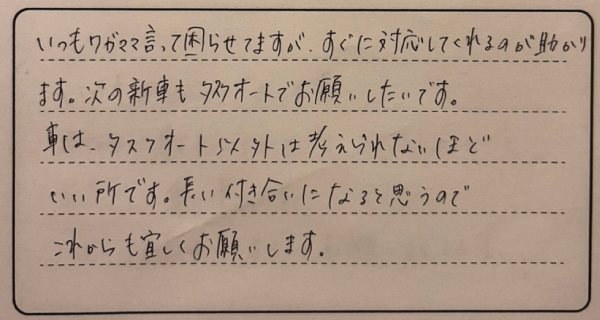 いつもワガママ言って困らせてますが、すぐに対応してくれるのが助かり
ます。次の新車もタスクオートでお願いしたいです。
車は、タスクオート以外は考えられないほど
いい所です。長い付き合いになると思うので
これからも宜しくお願いします。